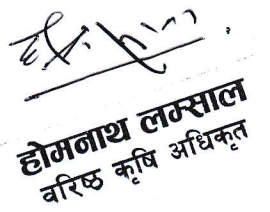 होमनाथ लम्साल
वरिष्ठ कृषि अधिकृत